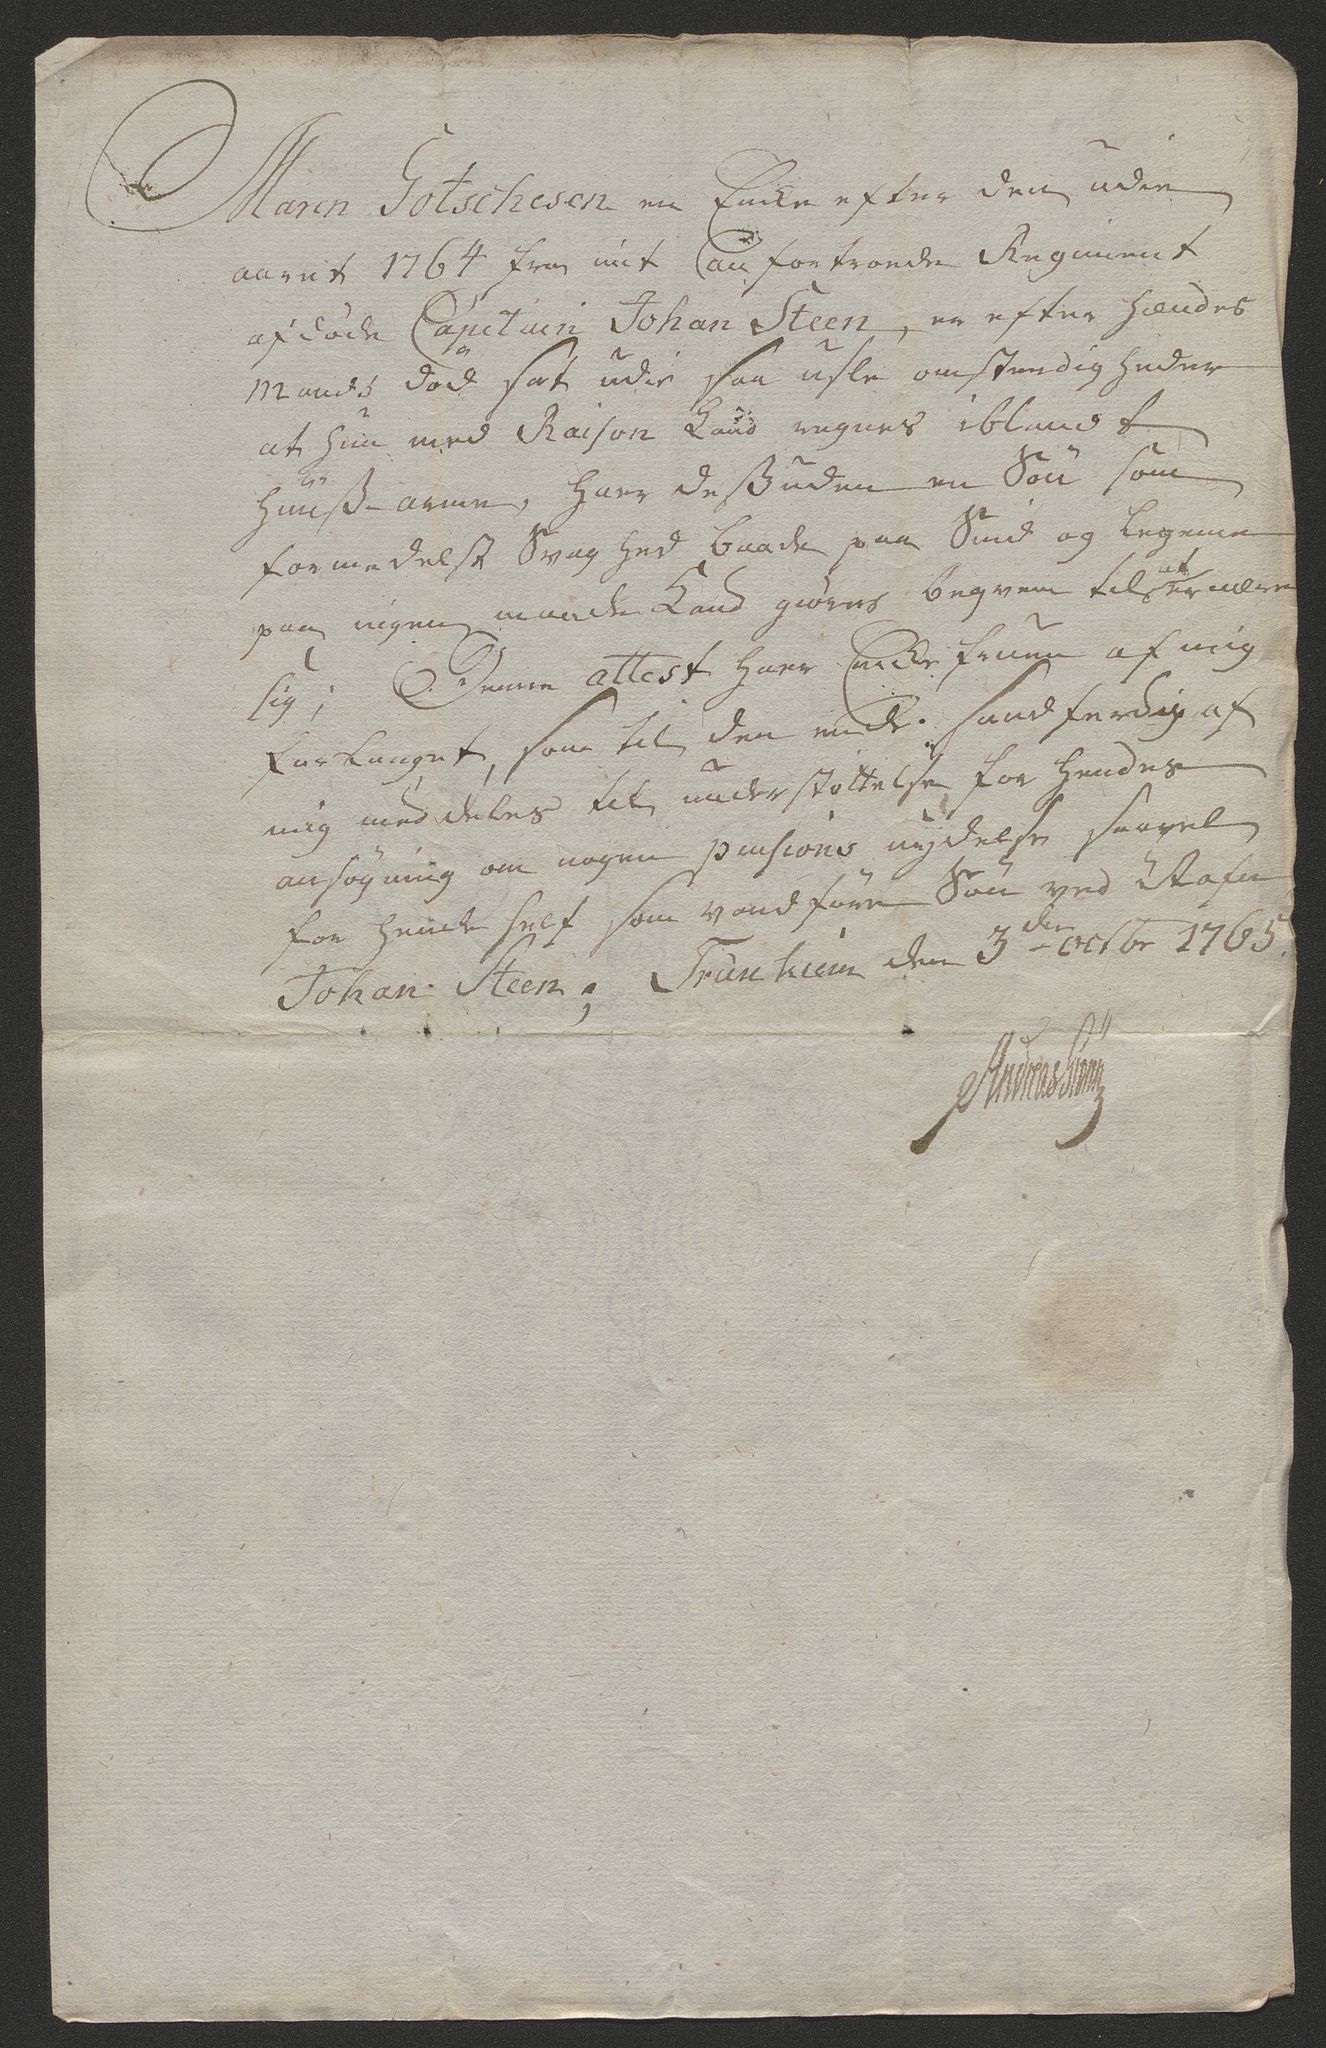 Maren Gotschesen en Encke efter den udie
aaret 1764 fra mit Anfortroede Regiment
afdöde Capitain Johan Steen, er efter Hændes
Mands död sat udie saa usle omstendigheder
at hun med Raison Kand regnes iblandt
huuß-arme, Haer deßuden en Sön som
formedelst Svaghed baade paa Sind og Legeme
paa ingen maade Kand giöres beqvem til at ernære
sig; Denne attest haer Encke fruen af mig
forlanget, som til den ende sandferdig af
mig meddeles til understöttelse for Hendes
ansögning om nogen pensions nydelse saavel
for Hende self som vanföre Sön ved Nafn
Johan Steen; Trunhiem den 3die octbr 1765.
Andreas